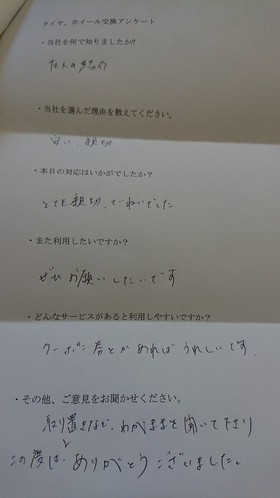 タイヤ、ホイール交換アンケート
・当社を何で知りましたか?
友人の紹介
・当社を選んだ理由を教えてください。
安い、親切
・本日の対応はいかがでしたか?
とても親切、ていねいでした
・また利用したいですか?
ぜひお願いしたいです
・どんなサービスがあると利用しやすいですか?
クーポン券とかあればうれしいです。
・その他、ご意見をお聞かせください。
取り置きなど、わがままを聞いて下さり
この度は、ありがとうございました。